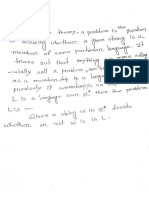 theory, a problem is the question
of deciding whether a given string is a
member of some particular language. It
turns out that anything we more
-ually call a problem, can be
as a membership in a language
precisely if
L is a language over Σ* then the problem
L is —
Given a string w in Σ* decide
whether or not w is in L.